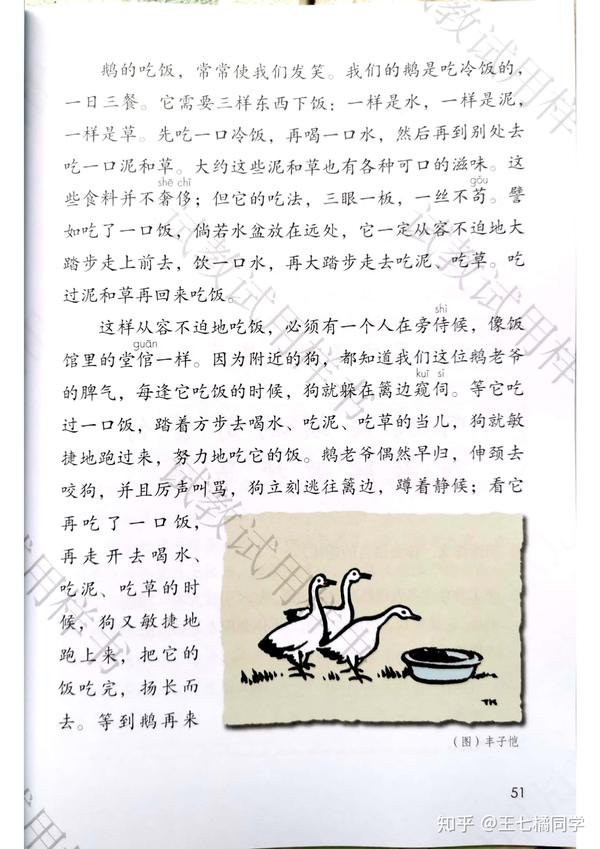 鹅的吃饭，常常使我们发笑。我们的鹅是吃冷饭的，
一日三餐。它需要三样东西下饭：一样是水，一样是泥，
一样是草。先吃一口冷饭，再喝一口水，然后再到别处去
吃一口泥和草。大约这些泥和草也有各种可口的滋味。这
shē chǐ gǒu
些食料并不奢侈；但它的吃法，三眼一板，一丝不苟。譬
如吃了一口饭，倘若水盆放在远处，它一定从容不迫地大
踏步走上前去，饮一口水，再大踏步走去吃泥、吃草。吃
过泥和草再回来吃饭。
shì
这样从容不迫地吃饭，必须有一个人在旁侍候，像饭
guān
馆里的堂倌一样。因为附近的狗，都知道我们这位鹅老爷
kuī sì
的脾气，每逢它吃饭的时候，狗就躲在篱边窥伺。等它吃
过一口饭，踏着方步去喝水、吃泥、吃草的当儿，狗就敏
捷地跑过来，努力地吃它的饭。鹅老爷偶然早归，伸颈去
咬狗，并且厉声叫骂，狗立刻逃往篱边，蹲着静候；看它
再吃了一口饭，
再走开去喝水、
吃泥、吃草的时
候，狗又敏捷地
跑上来，把它的
饭吃完，扬长而
去。等到鹅再来
TK
（图）丰子恺
51
知乎 @王七橘同学
试教试用样书
试教试用样书
试教试用样书
试教试用样书